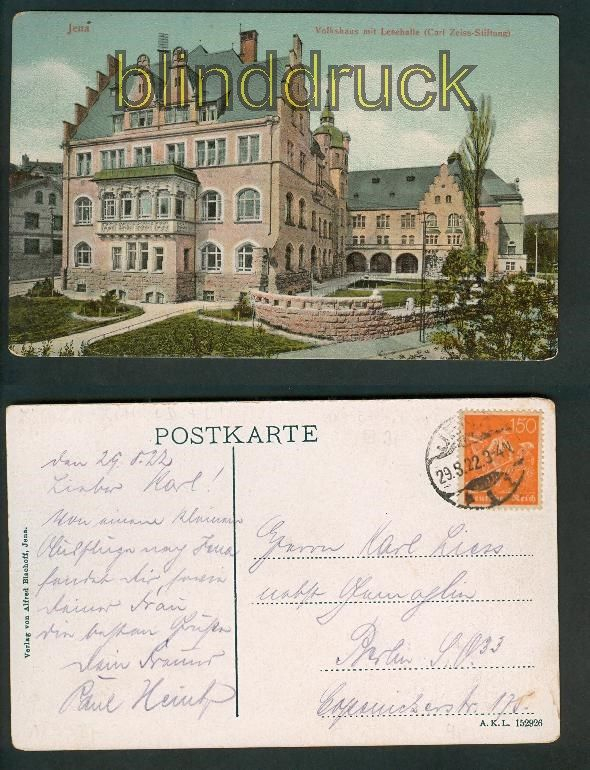 Jena
Volkshaus mit Lesehalle (Carl Zeiss-Stiftung)
blinddruck
POSTKARTE
den 29.8.22
Lieber Karl!
Von einem kleinen
Ausfluge nach Jena
sendet Dir sowie
Deiner Frau
die besten Grüße
Dein Freund
Paul
Verlag von Alfred Bischoff, Jena.
150
Deutsches Reich
29.8.22.3-4N.
Herrn Karl Liess
nebst Gemahlin
Berlin S.O.33
Copenickerstr. 175
A.K.L. 152926